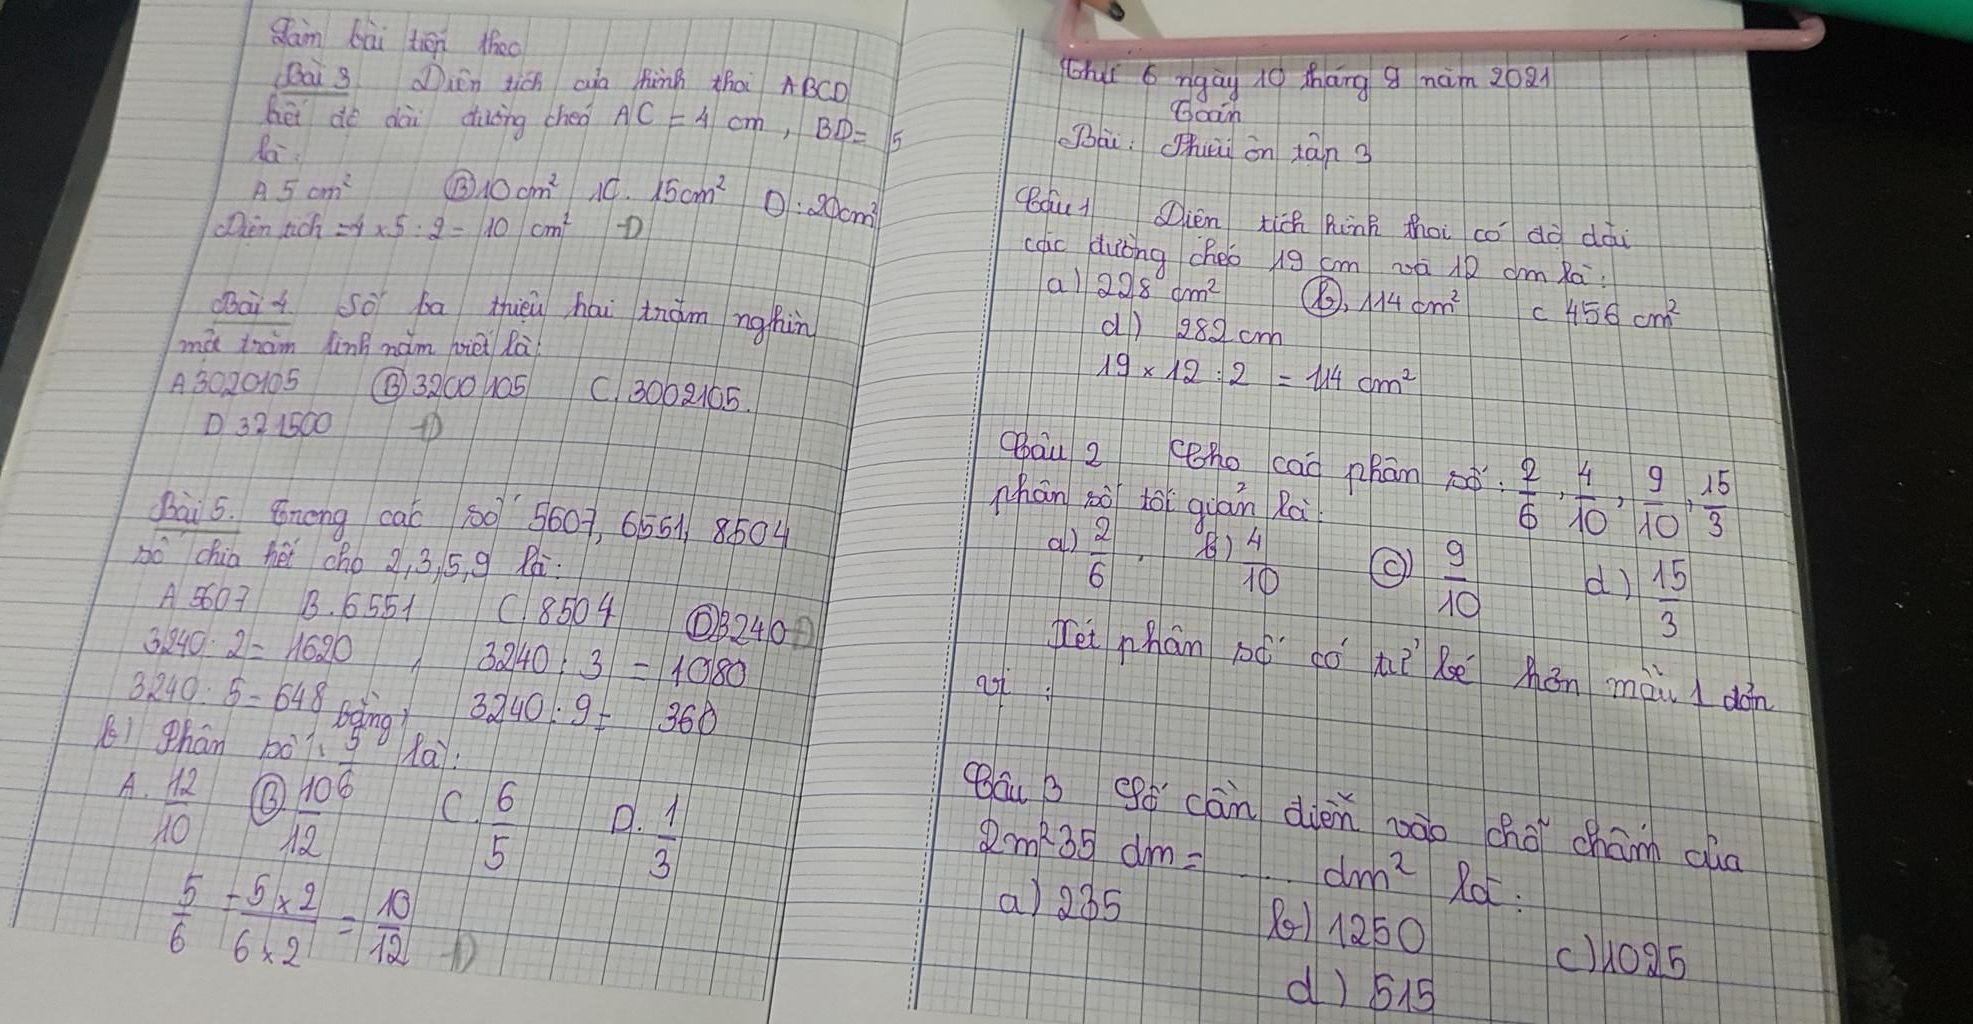 Làm bài tiếp theo
Bài 3 Diện tích của hình thoi ABCD
biết độ dài đường chéo AC = 4 cm, BD = 5
là:
A 5 cm² B 10 cm² C. 15cm² D: 20cm²
Diện tích = 4 x 5 : 2 = 10 cm² Đ
Bài 4 Số ba triệu hai trăm nghìn
một trăm linh năm viết là:
A 3020105 B 3200105 C. 3002105.
D 321500 Đ
Bài 5. Trong các số 5607, 6551, 8504
số chia hết cho 2,3,5,9 là:
A 5607 B. 6551 C. 8504 D 3240 Đ
3240 : 2 = 1620 , 3240 : 3 = 1080
3240 : 5 = 648 3240 : 9 = 360
b) Phân số bằng 5 là:
A. 12/10 B. 106/12 C. 6/5 D. 1/3
5/6 = 5 x 2/6 x 2 = 10/12 Đ
Thứ 6 ngày 10 tháng 9 năm 2021
Toán
Bài: Phiếu ôn tập 3
Câu 1 Diện tích hình thoi có độ dài
các đường chéo 19 cm và 12 cm là:
a) 228 cm² b), 114 cm² c 456 cm²
d) 282 cm
19 x 12 : 2 = 114 cm²
Câu 2 Cho các phân số: 2/6, 4/10, 9/10, 15/3
phân số tối giản là:
a) 2/6. b) 4/10 c) 9/10 d) 15/3
Xét phân số có tử bé hơn mẫu 1 đơn
vị:
Câu 3 Số cần điền vào chỗ chấm của
2m²35 dm = ..... dm² là:
a) 235 b) 1250 c) 1025
d) 515